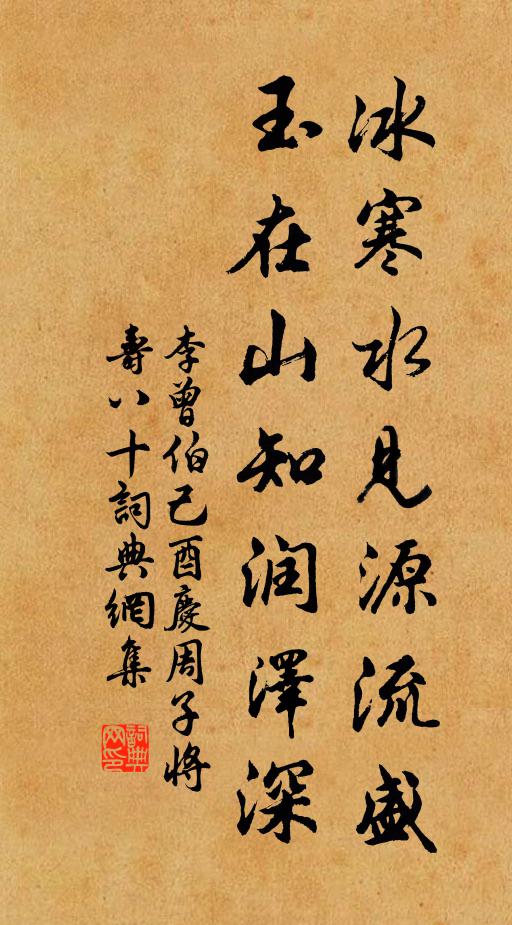 冰寒水见源流盛
玉在山知润澤深
李曾伯己酉慶周子將
壽八十詞典網集
詞典網印